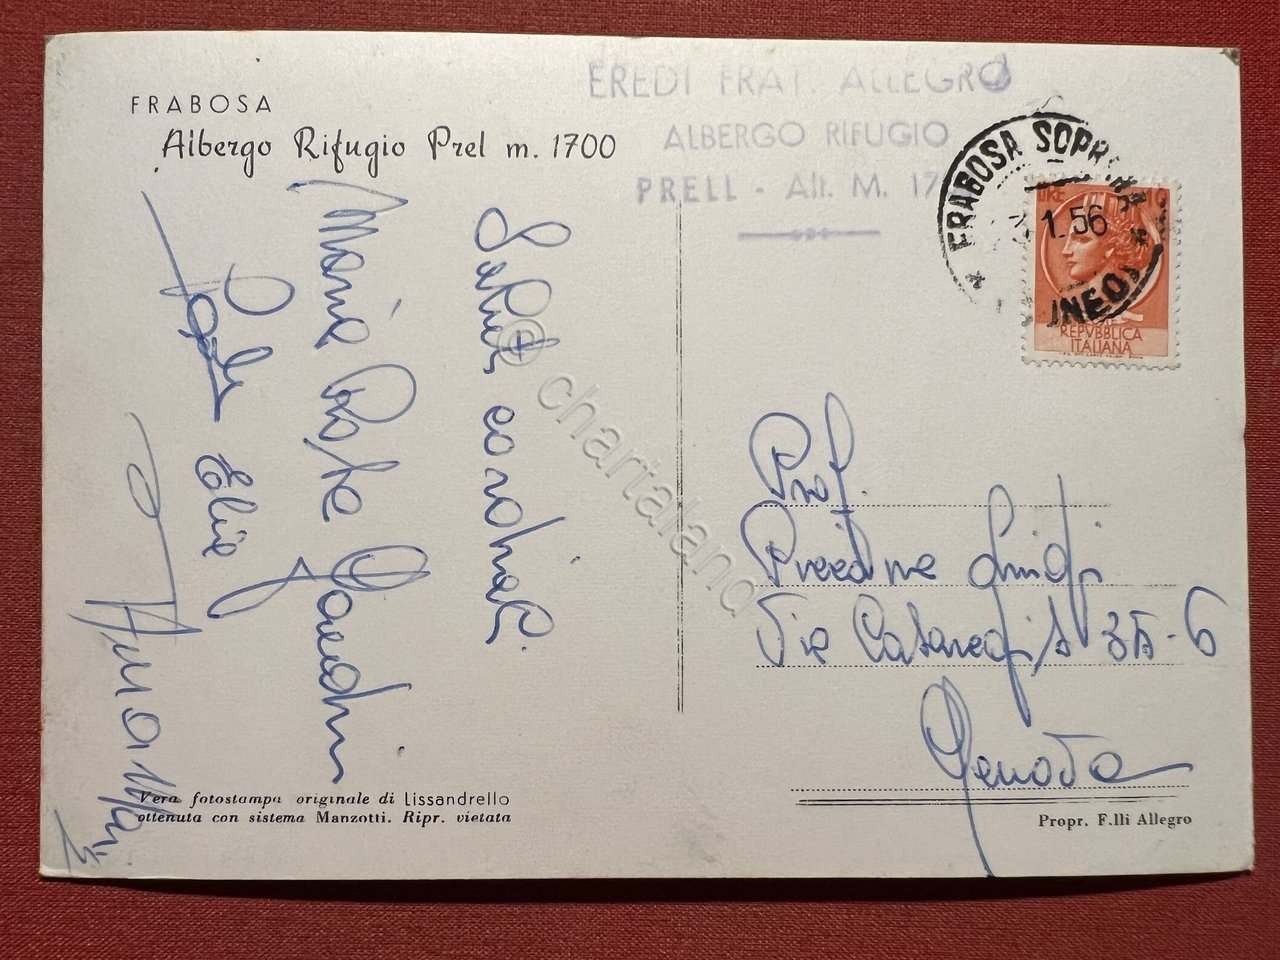 FRABOSA
Albergo Rifugio Prel m. 1700
EREDI FRAT. ALLEGRO
ALBERGO RIFUGIO
PRELL - Alt. M. 17
FRABOSA SOPRANA
1.56
LIRE 10
REPVBBLICA
ITALIANA
Saluti cordiali
Maria Rosa
Elio
Prof.
Luigi
Via Casaregis 35-6
Genova
© chartaland
Vera fotostampa originale di Lissandrello
ottenuta con sistema Manzotti. Ripr. vietata
Propr. F.lli Allegro